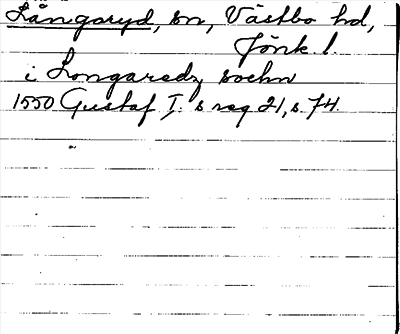 Långaryd, sn, Västbo hd,
Jönk l.
i Longaredz sochn
1550 Gustaf I:s reg 21, s. 74.